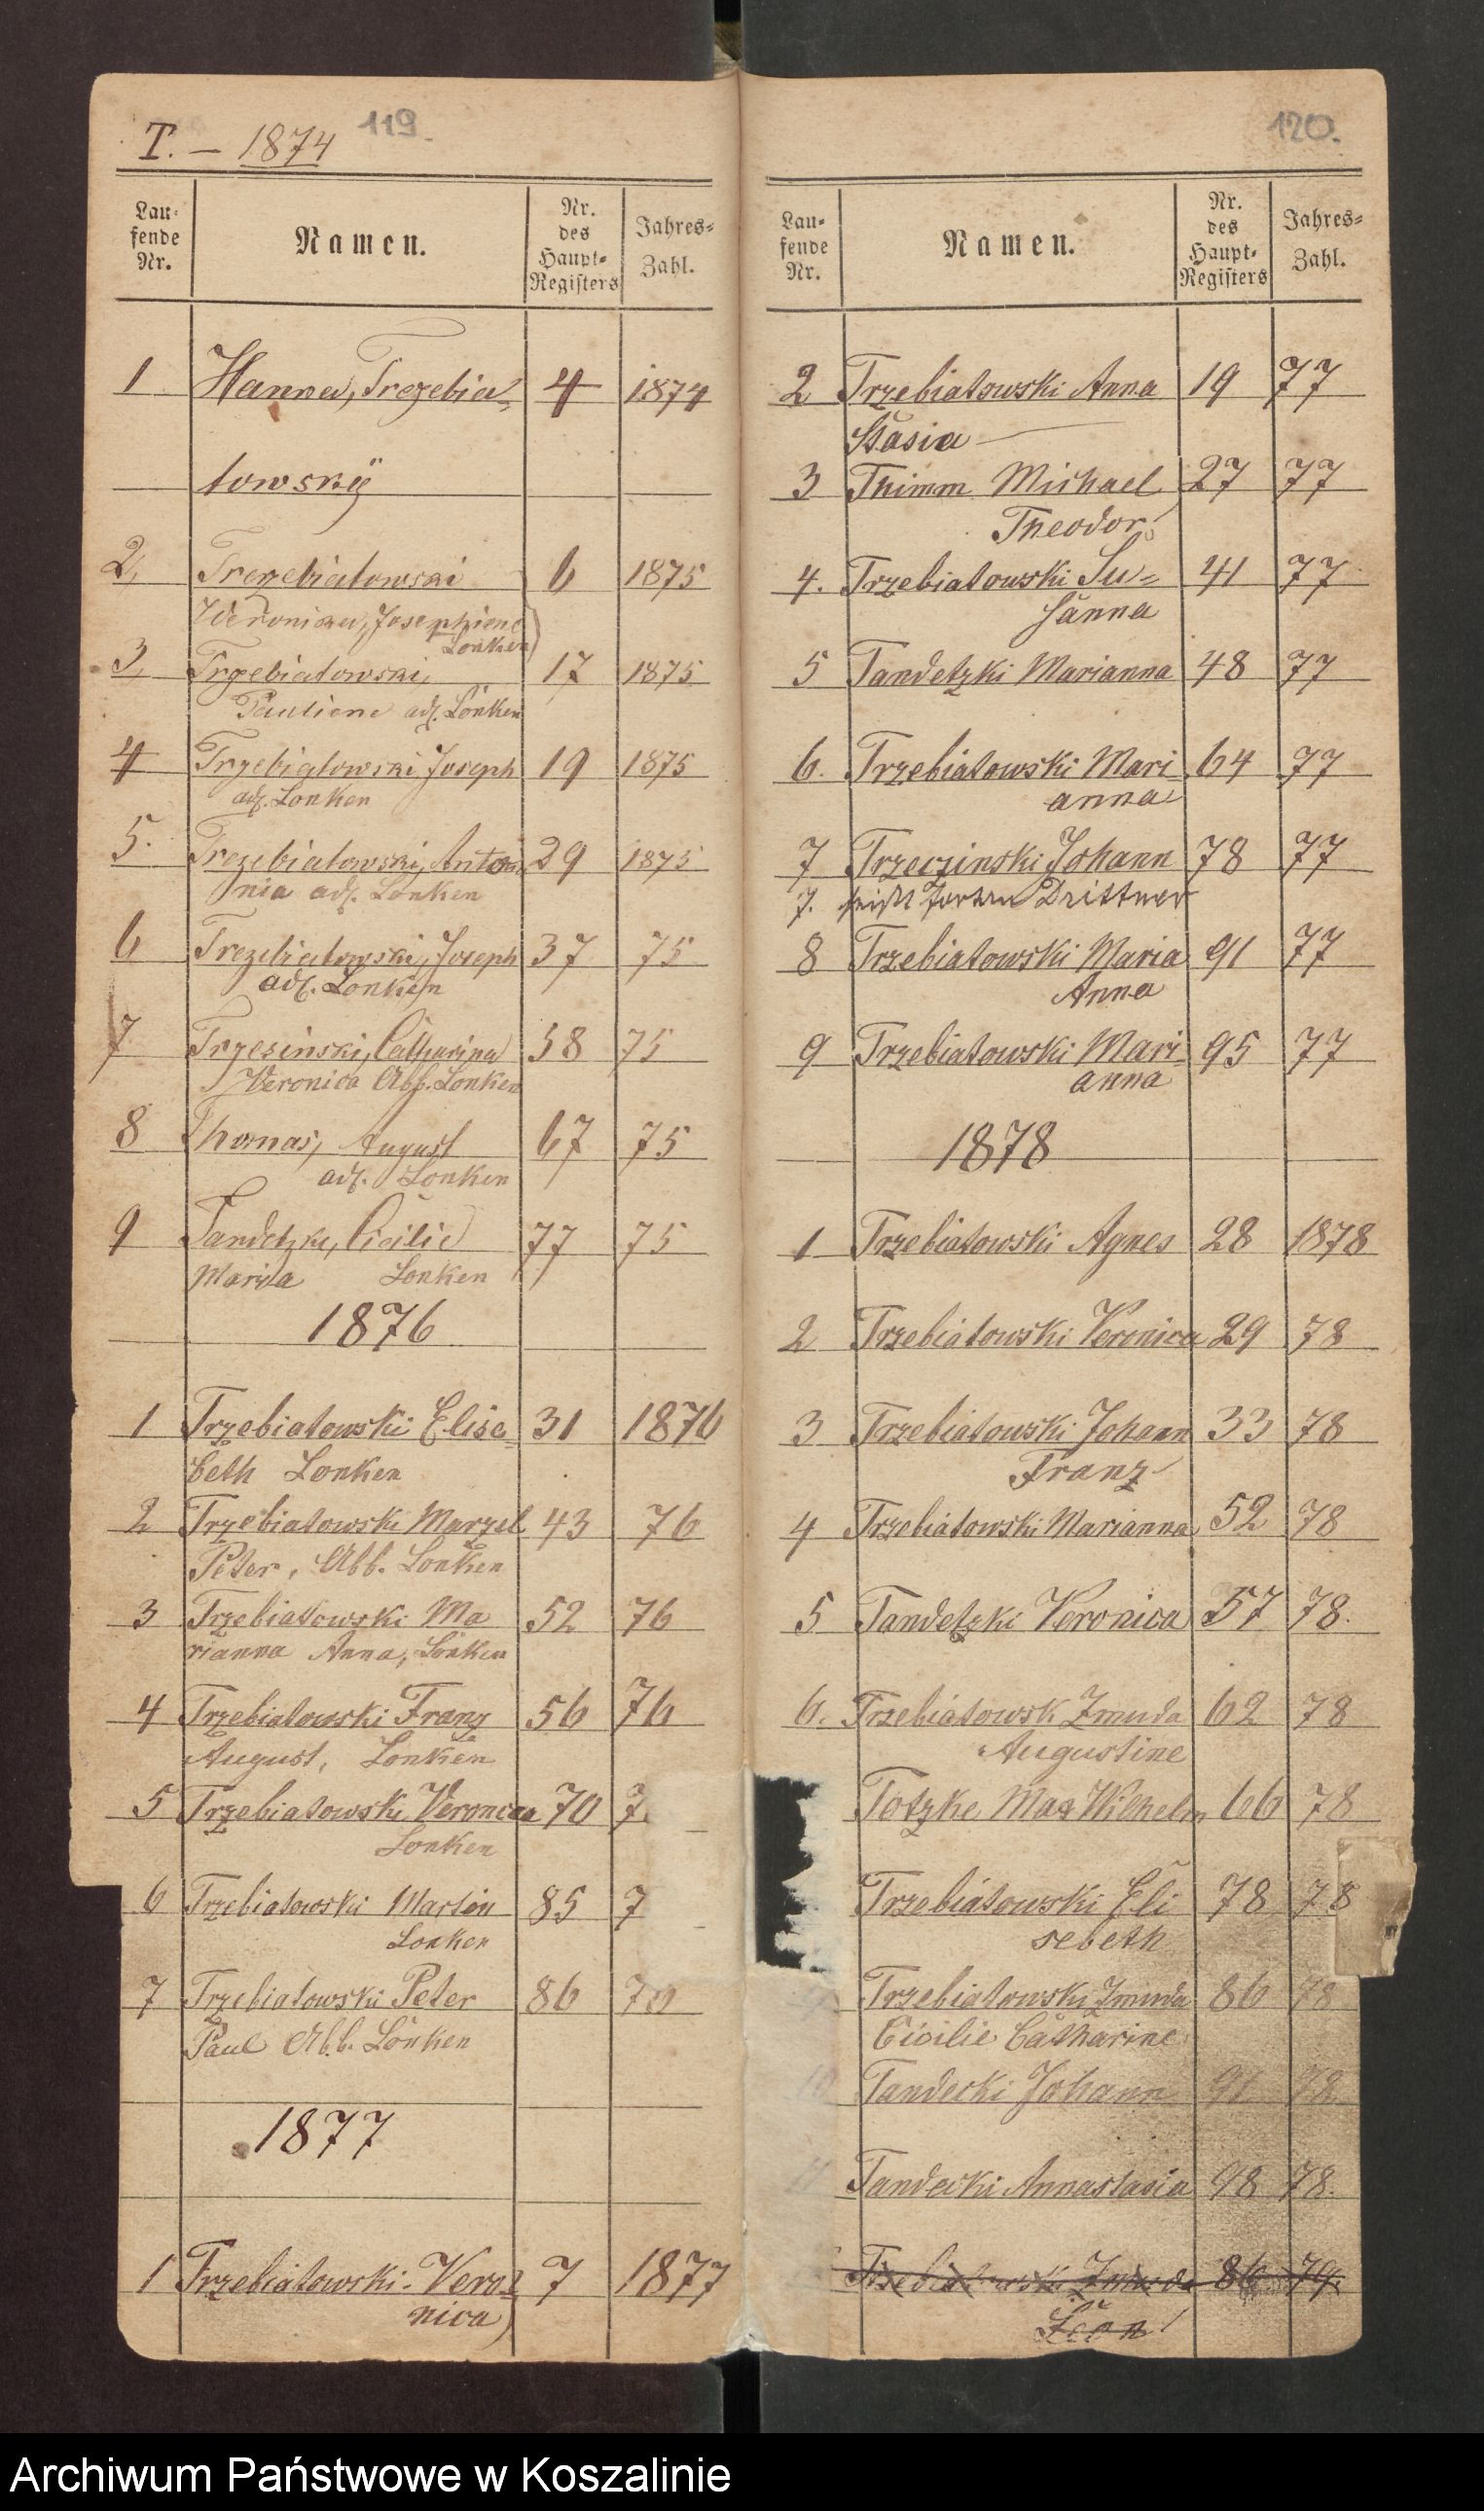 T. – 1874
119.
Lau-
fende
Nr.
Namen.
Nr.
des
Haupt-
Registers
Jahres-
Zahl.
1 Hanna, Trezebia- 4 1874
towskÿ
2, Trezebiatowski 6 1875
Veronica, Josephiene
Lonken
3, Trzebiatowski, 17 1875
Pauliene adl. Lonken
4 Trzebiatowski Joseph 19 1875
adl. Lonken
5. Trezebiatowski, Anton 29 1875
nia adl. Lonken
6 Trezebiatowski, Joseph 37 75
adl. Lonken
7 Trzesinski, Catharina 58 75
Veronica Abb. Lonken
8 Thomas, August 67 75
adl. Lonken
9 Tandetzki, Cicilie 77 75
Maria Lonken
1876
1 Trzebiatowski Elisa- 31 1876
beth Lonken
2 Trzebiatowski Marzel 43 76
Peter, Abb. Lonken
3 Trzebiatowski Ma 52 76
rianna Anna, Lonken
4 Trzebiatowski Franz 56 76
August, Lonken
5 Trzebiatowski Veronica 70 7
Lonken
6 Trzebiatowski Martin 85 7
Lonken
7 Trzebiatowski Peter 86 76
Paul Abb. Lonken
1877
1 Trzebiatowski Vero= 7 1877
nica
120.
Lau-
fende
Nr.
Namen.
Nr.
des
Haupt-
Registers
Jahres-
Zahl.
2 Trzebiatowski Anna 19 77
Stasia
3 Thimm Michael 27 77
Theodor
4. Trzebiatowski Su= 41 77
sanna
5 Tandetzki Marianna 48 77
6. Trzebiatowski Mari 64 77
anna
7 Trzeczinski Johann 78 77
7. heißt Johann Drittner
8 Trzebiatowski Maria 91 77
Anna
9 Trzebiatowski Mari- 95 77
anna
1878
1 Trzebiatowski Agnes 28 1878
2 Trzebiatowski Veronica 29 78
3 Trzebiatowski Johann 33 78
Franz
4 Trzebiatowski Marianna 52 78
5 Tandetzki Veronica 57 78.
6. Trzebiatowsk Zmuda 62 78
Augustine
Totzke Max Wilhelm 66 78
Trzebiatowski Eli 78 78
sebeth
Trzebiatowski Zmuda 86 78
Cicilie Catharine
10 Tandecki Johann 91 78
11 Tandecki Annastasia 98 78.
Trzebiatowski Zmuda 86 79.
Leon
Archiwum Państwowe w Koszalinie